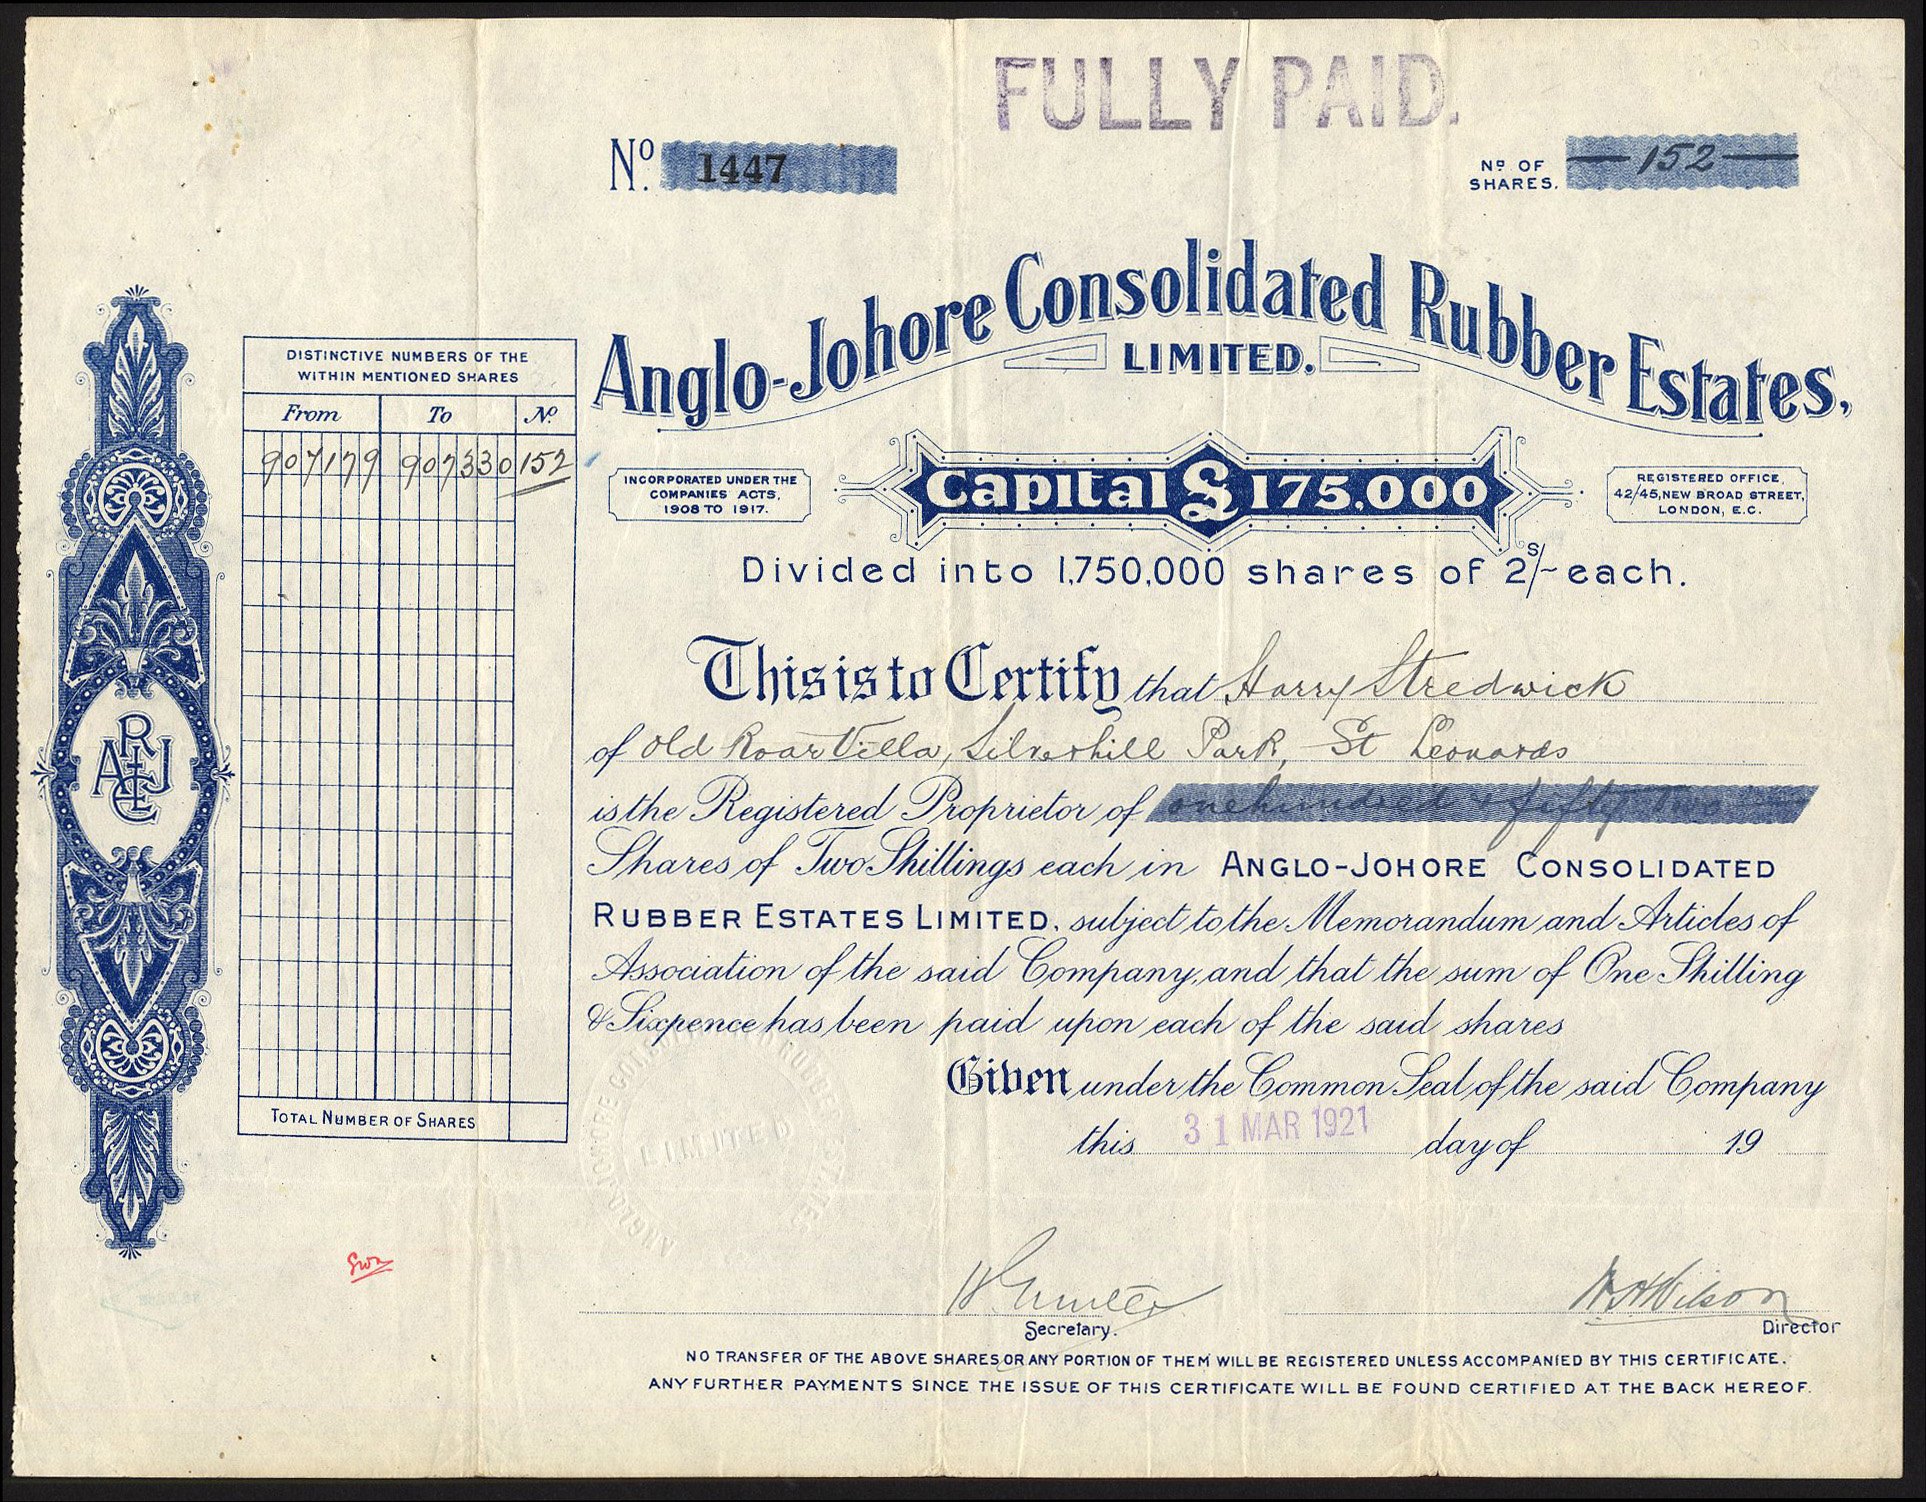 FULLY PAID.
No. 1447
No. OF SHARES. 152
Anglo-Johore Consolidated Rubber Estates,
LIMITED.
DISTINCTIVE NUMBERS OF THE
WITHIN MENTIONED SHARES
From To No.
907179 907330 152
INCORPORATED UNDER THE
COMPANIES ACTS,
1908 TO 1917.
Capital £175,000
REGISTERED OFFICE,
42/45, NEW BROAD STREET,
LONDON, E.C.
Divided into 1,750,000 shares of 2s/- each.
This is to Certify that Harry Stredwick
of Old Roar Villa, Silverhill Park, St Leonards
is the Registered Proprietor of one hundred & fifty two
Shares of Two Shillings each in ANGLO-JOHORE CONSOLIDATED
RUBBER ESTATES LIMITED, subject to the Memorandum and Articles of
Association of the said Company, and that the sum of One Shilling
& Sixpence has been paid upon each of the said shares
Given under the Common Seal of the said Company
this 31 MAR 1921 day of 19
TOTAL NUMBER OF SHARES
LIMITED
Secretary.
W.H. Wilson
Director
NO TRANSFER OF THE ABOVE SHARES OR ANY PORTION OF THEM WILL BE REGISTERED UNLESS ACCOMPANIED BY THIS CERTIFICATE.
ANY FURTHER PAYMENTS SINCE THE ISSUE OF THIS CERTIFICATE WILL BE FOUND CERTIFIED AT THE BACK HEREOF.